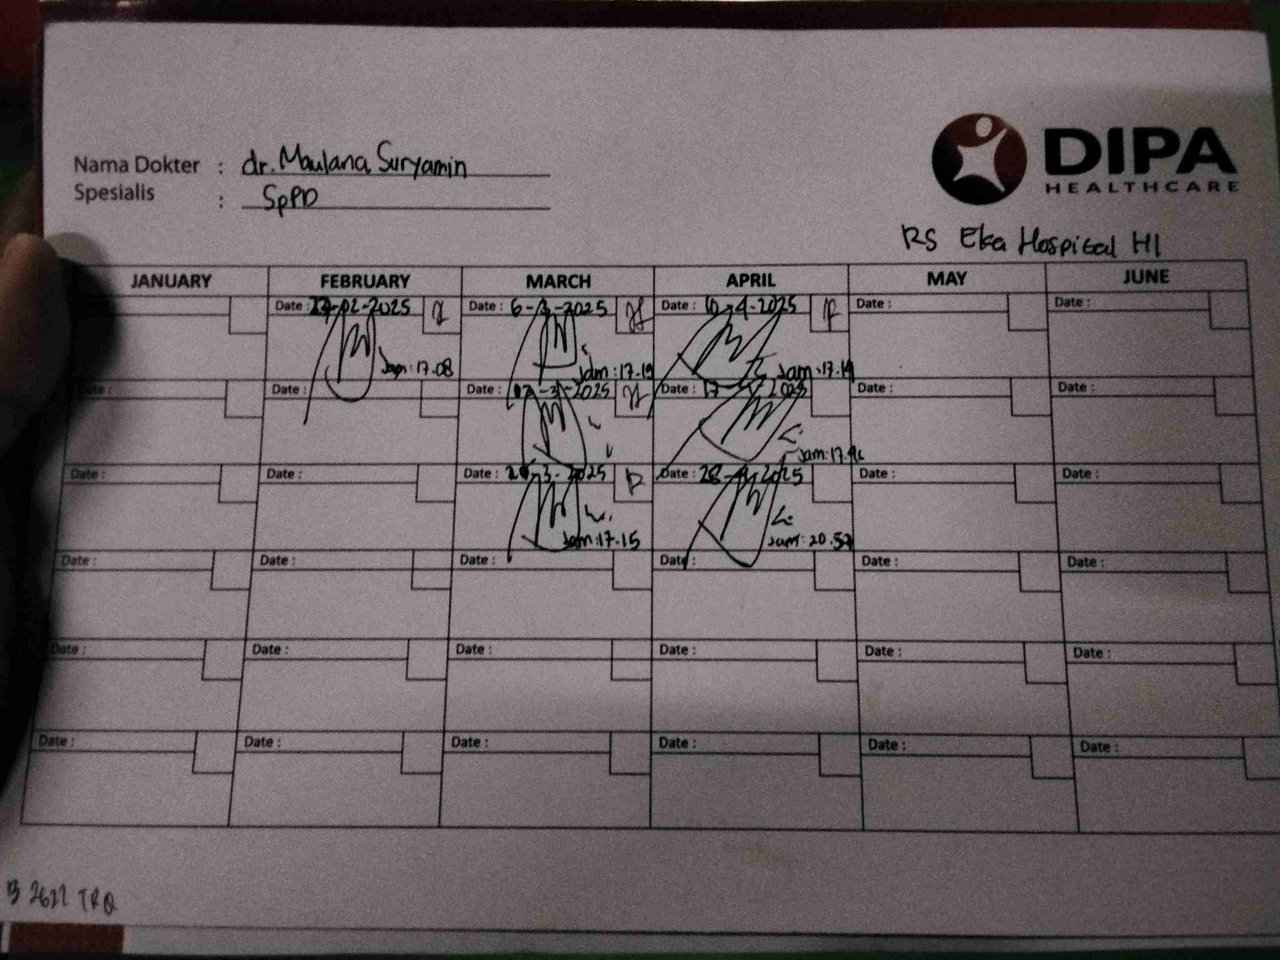 DIPA
HEALTHCARE
Nama Dokter : dr. Maulana Suryamin
Spesialis : SpPD
RS Eka Hospital
JANUARY FEBRUARY MARCH APRIL MAY JUNE
Date : -02-2025 Date : 6-3-2025 Date : 10-4-2025 Date : Date :
Jam : 17.08 Jam : 17.19 Jam : 17.19
Date : Date : -3-2025 Date : 17 2025 Date : Date :
Jam : 17.
Date : Date : Date : 2025 Date : 28 2025 Date : Date :
Jam : 17.15 Jam : 20.52
Date : Date : Date : Date : Date : Date :
Date : Date : Date : Date : Date : Date :
Date : Date : Date : Date : Date : Date :
B 2622 TRQ